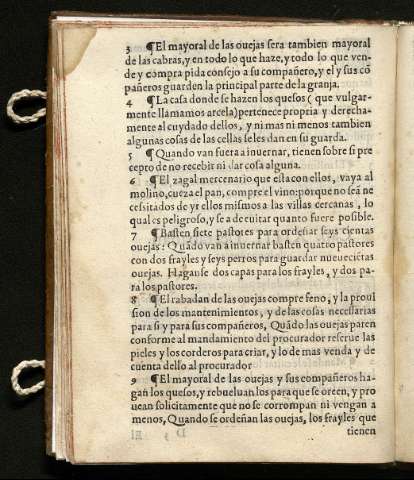 3 ¶El mayoral de las ouejas sera tambien mayoral
de las cabras, y en todo lo que haze, y todo lo que ven-
de y cõmpra pida consejo a su compañero, y el y sus cõ
pañeros guarden la principal parte de la granja.
4 ¶La casa donde se hazen los quesos ( que vulgar-
mente llamamos arcela) pertenece propria y derecha-
mente al cuydado dellos, y ni mas ni menos tambien
algunas cosas de las cellas se les dan en su guarda.
5 ¶Quando van fuera a inuernar, tienen sobre si pre
cepto de no recebir ni dar cosa alguna.
6 ¶El zagal mercenario que esta con ellos, vaya al
molino, cueza el pan, compre el vino: porque no seã ne
cesitados de yr ellos mismos a las villas cercanas, lo
qual es peligroso, y se a de euitar quanto fuere posible.
7 ¶Basten siete pastores para ordeñar seys cientas
ouejas: Quãdo van a inuernar basten quatro pastores
con dos frayles y seys perros para guardar nueuecietas
ouejas. Haganse dos capas para los frayles, y dos pa-
ra los pastores.
8 ¶El rabadan de las ouejas compre feno, y la proui
sion de los mantenimientos, y de las cosas necessarias
para si y para sus compañeros, Quãdo las ouejas paren
conforme al mandamiento del procurador reserue las
pieles y los corderos para criar, y lo de mas venda y de
cuenta dello al procurador
9 ¶El mayoral de las ouejas y sus compañeros ha-
gan los quesos, y rebueluan los para que se oreen, y pro
uean solicitamente que no se corrompan ni vengan a
menos, Quando se ordeñan las ouejas, los frayles que
tienen